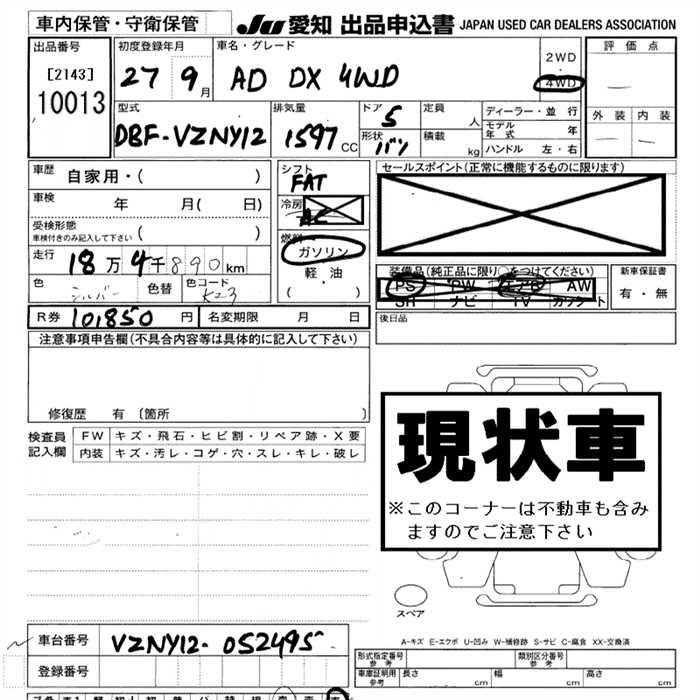 車内保管・守衛保管 JU 愛知 出品申込書 JAPAN USED CAR DEALERS ASSOCIATION
出品番号 初度登録年月 車名・グレード 2WD 評価点
[2143] 27 9月 AD DX 4WD ・ 4WD
10013
型式 排気量 ドア 5 定員 人 ディーラー・並行 外装 内装
DBF-VZNY12 1597 CC 形状 バン 積載 kg モデル年式 年
ハンドル 左・右
車歴 自家用・( ) シフト FAT セールスポイント(正常に機能するものに限ります)
車検 年 月( 日) 冷房 AC
受検形態 ( )
車検付きのみ記入して下さい
燃料 ガソリン
軽・油
( ・ )
走行 18万4千890km 装備品(純正品に限り○をつけてください) 新車保証書
色 シルバー 色替 色コード K23 PS PW エアB AW 有・無
SR ナビ TV カセット
R券 101,850 円 名変期限 月 日 後日品
注意事項申告欄(不具合内容等は具体的に記入して下さい)
修復歴 有 〔箇所 〕
検査員記入欄 FW キズ・飛石・ヒビ割・リペア跡・X要
内装 キズ・汚レ・コゲ・穴・スレ・キレ・破レ
現状車
※このコーナーは不動車も含み
ますのでご注意下さい
スペア
A-キズ E-エクボ U-凹み W-補修跡 S-サビ C-腐食 XX-交換済
車台番号 VZNY12-052495
登録番号
形式指定番号 参考 類別区分番号 参考
車庫証明用 参考 長さ cm 幅 cm 高さ cm